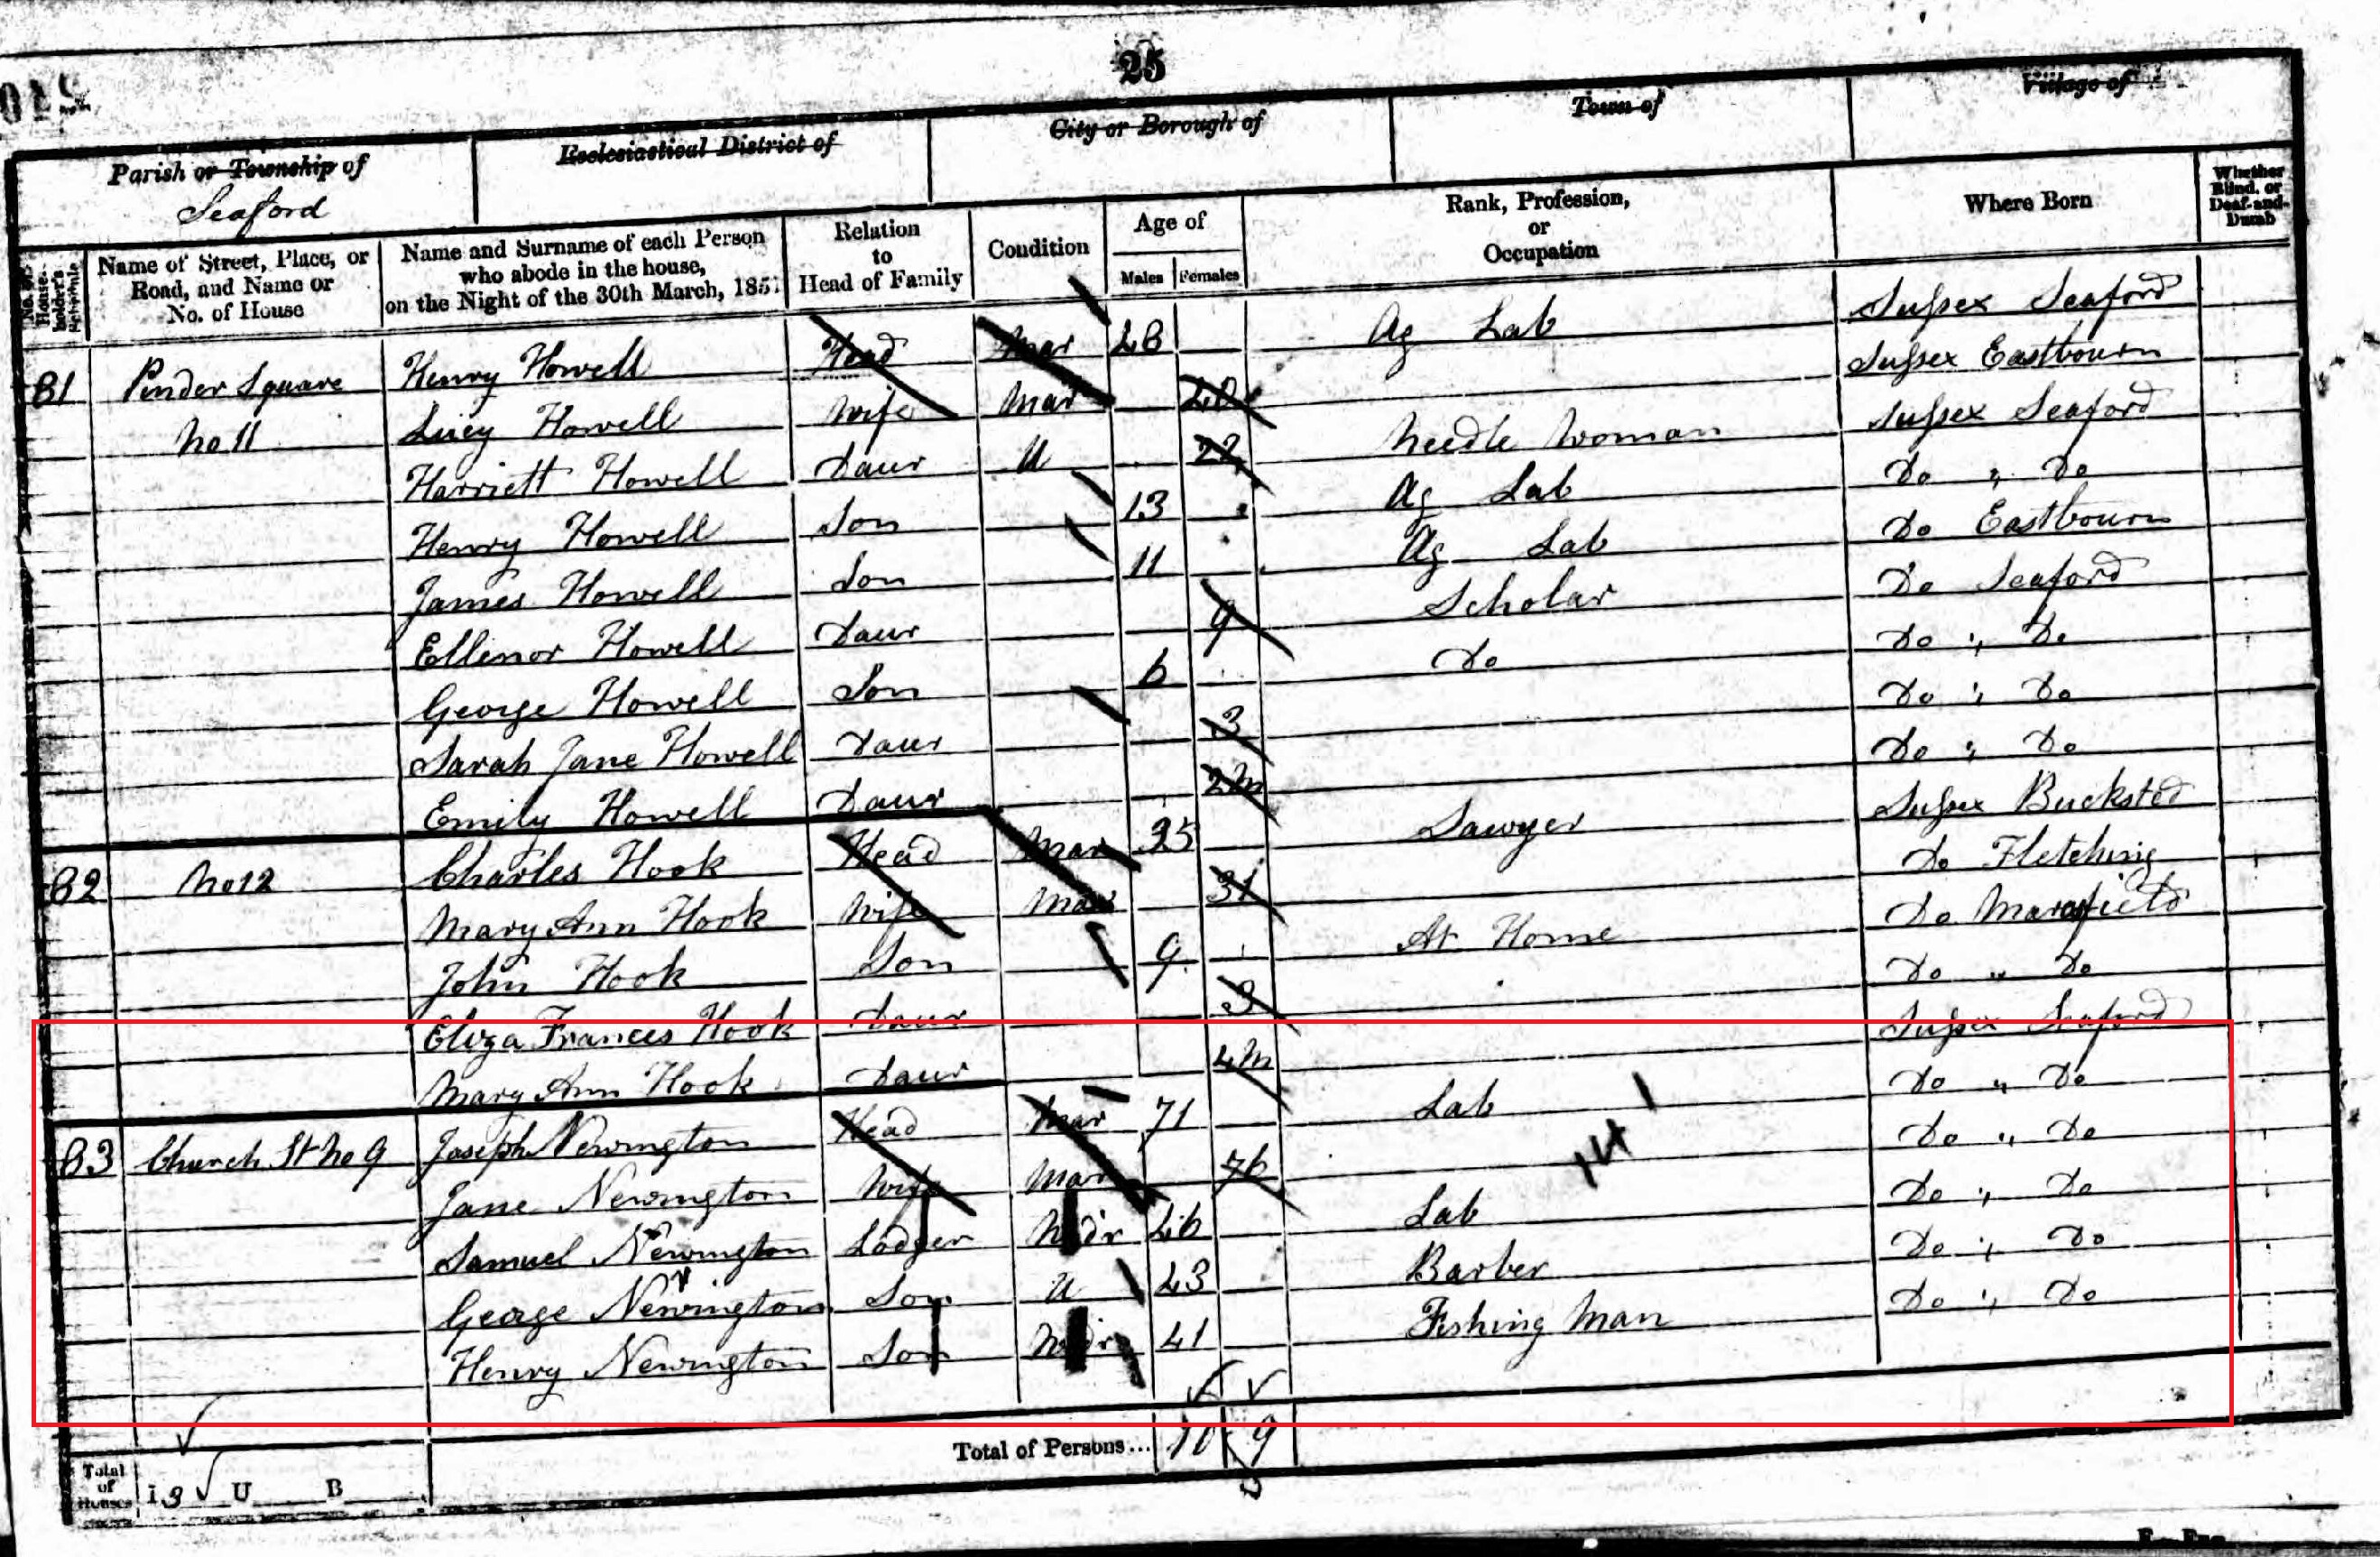 25
Parish or Township of
Seaford
Ecclesiastical District of
City or Borough of
Town of
Village of
No. of House-holder's Schedule
Name of Street, Place, or Road, and Name or No. of House
Name and Surname of each Person who abode in the house, on the Night of the 30th March, 1851
Relation to Head of Family
Condition
Age of
Males Females
Rank, Profession, or Occupation
Where Born
Whether Blind, or Deaf-and-Dumb
81 Pinder Square Henry Howell Head Mar 48 Ag Lab Sussex Seaford
No 11 Lucy Howell Wife Mar 40 Sussex Eastbourn
Harriett Howell Daur U 22 Needle Woman Sussex Seaford
Henry Howell Son 13 Ag Lab Do " Do
James Howell Son 11 Ag Lab Do Eastbourn
Ellenor Howell Daur 9 Scholar Do Seaford
George Howell Son 6 Do Do " Do
Sarah Jane Howell Daur 3 Do " Do
Emily Howell Daur 2m Do " Do
82 No 12 Charles Hook Head Mar 35 Sawyer Sussex Bucksted
Mary Ann Hook Wife Mar 31 Do Fletching
John Hook Son 9 At Home Do Maresfield
Eliza Frances Hook Daur 3 Do " Do
Mary Ann Hook Daur 4m Sussex Seaford
83 Church St No 9 Joseph Newington Head Mar 71 Lab Do " Do
Jane Newington Wife Mar 76 Do " Do
Samuel Newington Lodger Widr 46 Lab Do " Do
George Newington Son U 43 Barber Do " Do
Henry Newington Son Widr 41 Fishing Man Do " Do
Total of Houses 13 U B
Total of Persons... 10 9